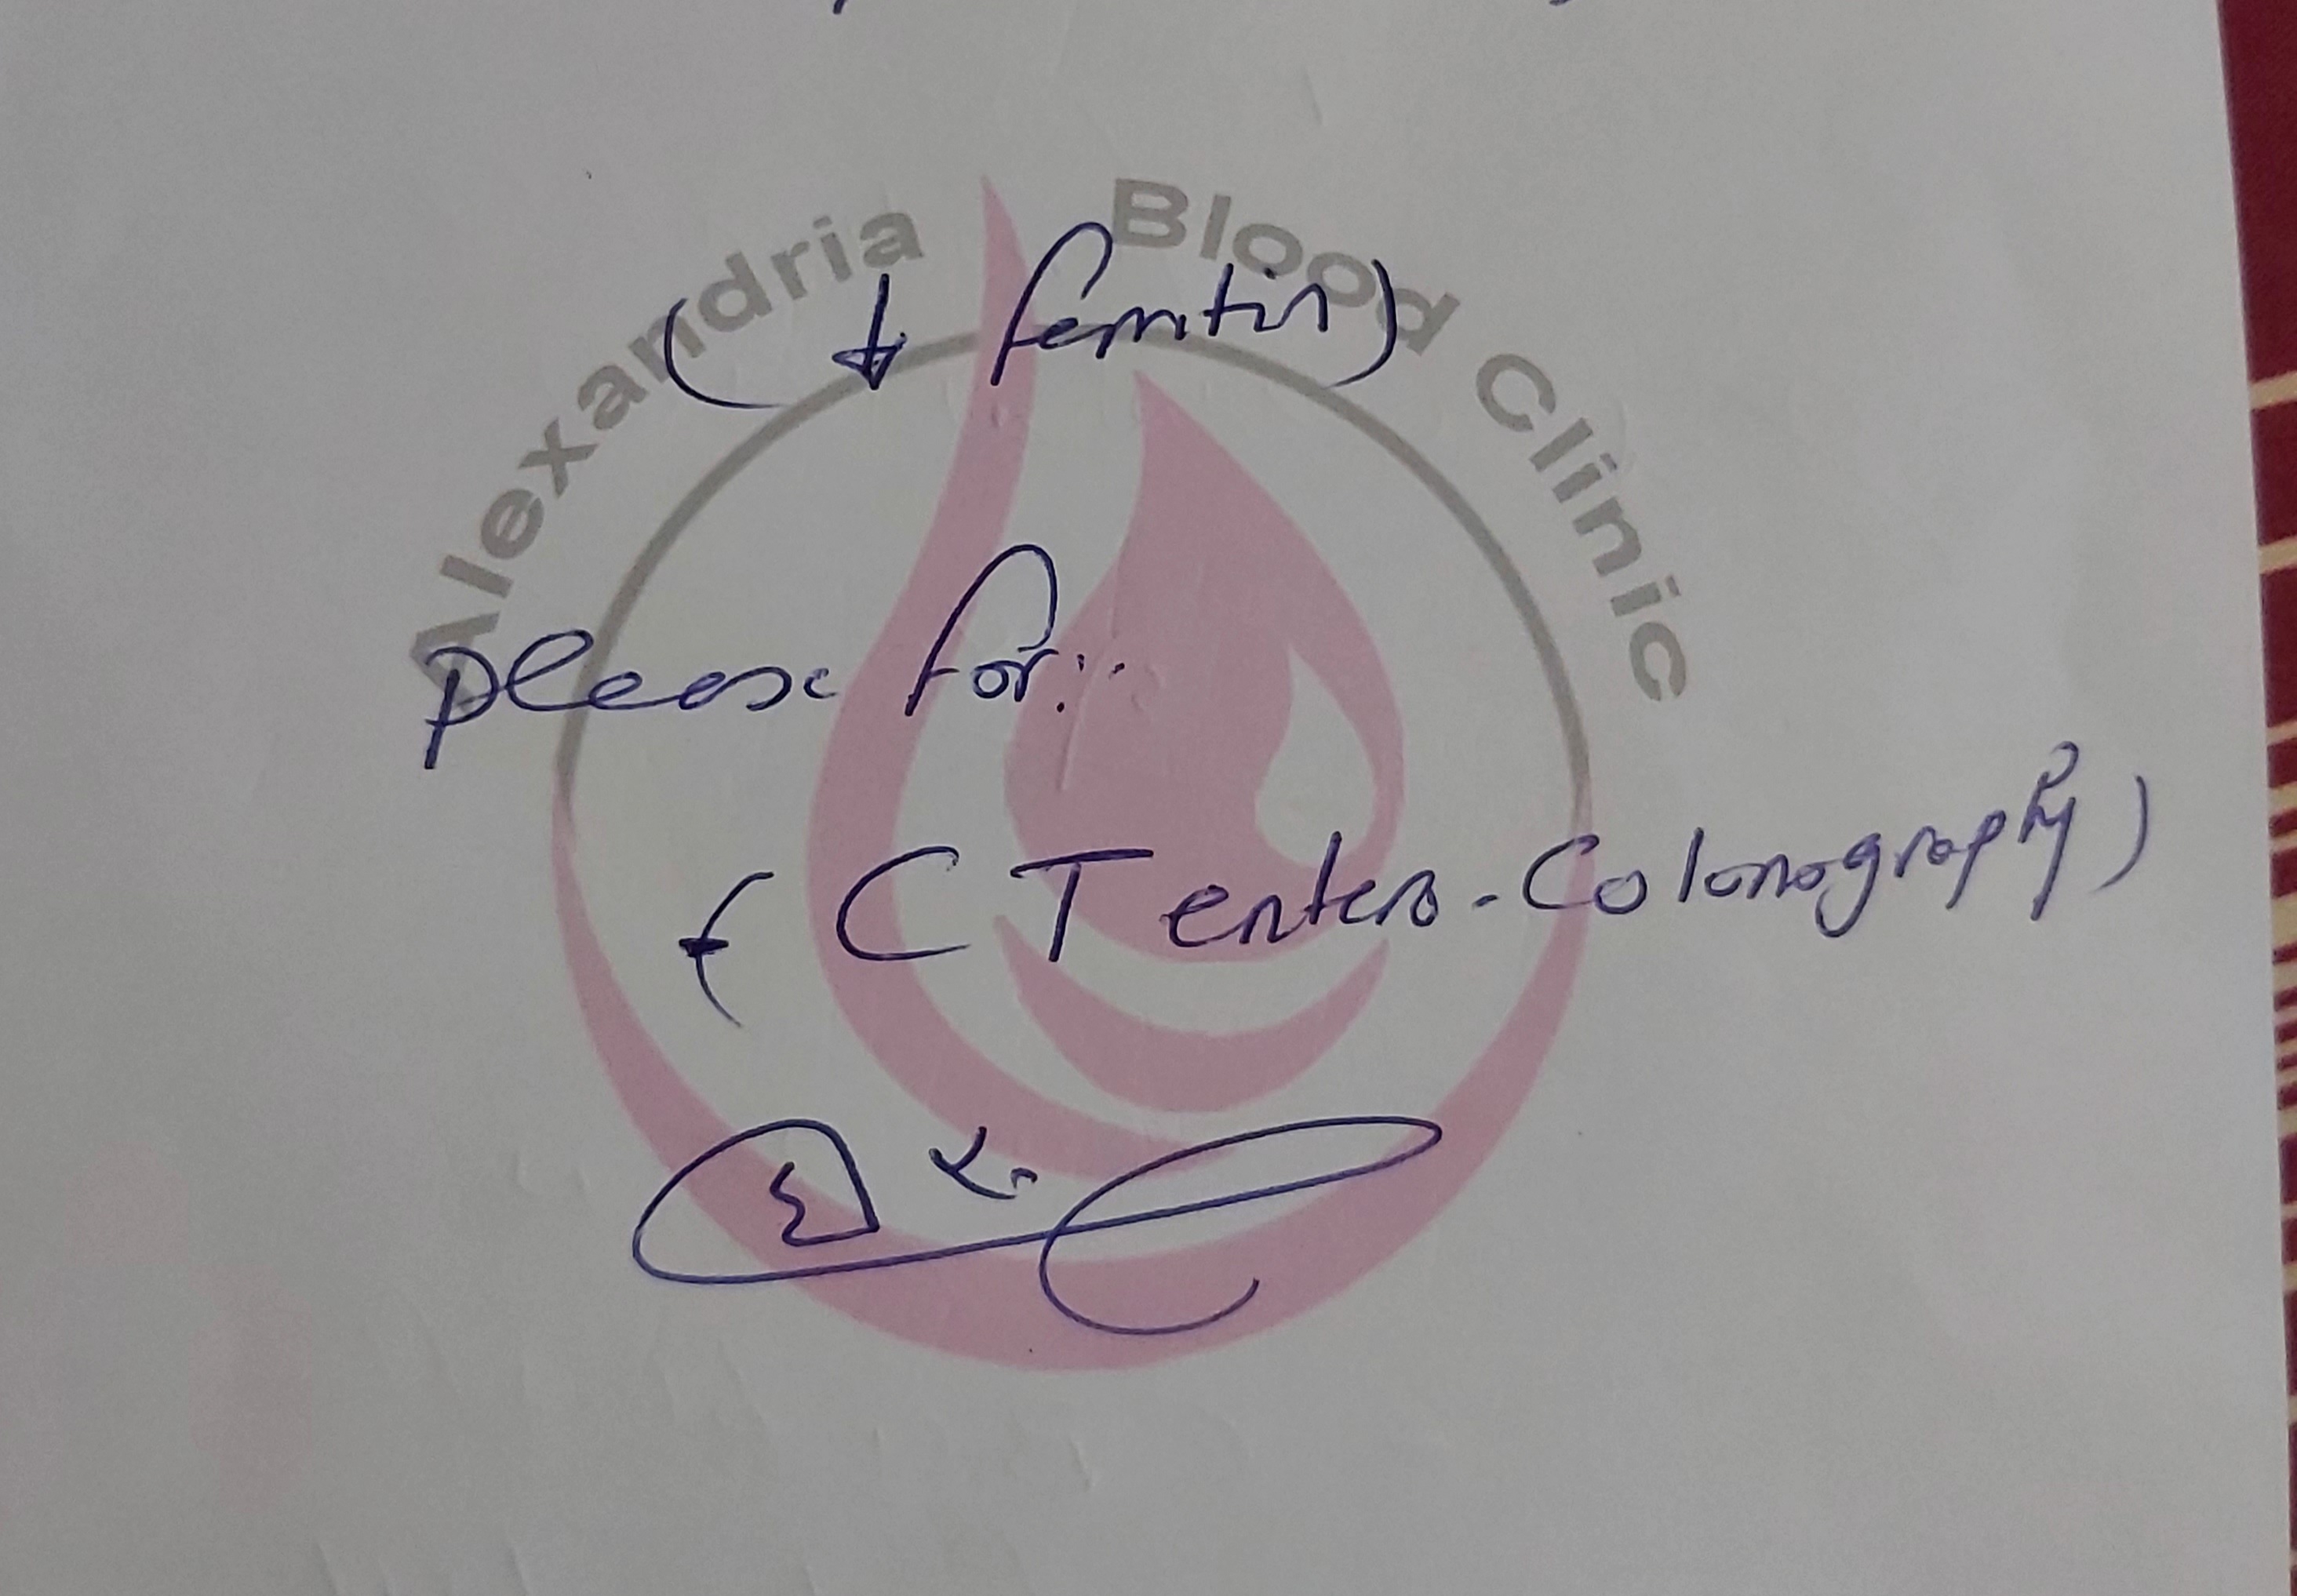 Alexandria Blood Clinic
(↓ ferritin)
please for:
(CT entero-Colonography)